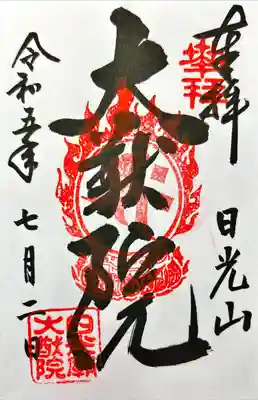 奉拝
日光山
大猷院
令和五年
七月二日
奉拝
日光廟
大猷院